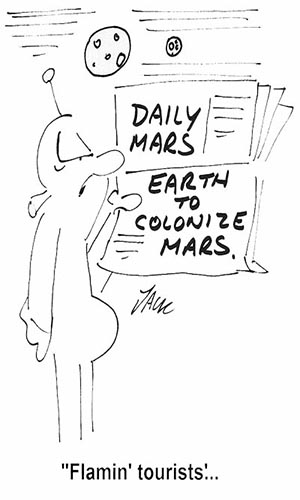 DAILY
MARS
EARTH
TO
COLONIZE
MARS.
JACK
"Flamin' tourists'...